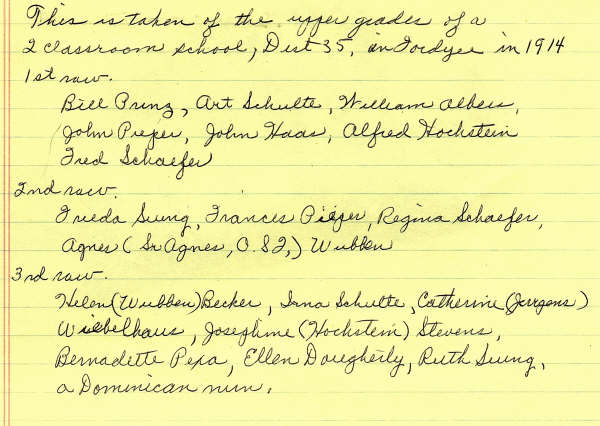 This is taken of the upper grades of a
2 classroom school, Dist 35, in Fordyce in 1914
1st row.
Bill Prinz, Art Schulte, William Albers,
John Pieper, John Haas, Alfred Hochstein
Fred Schaefer
2nd row.
Frieda Suing, Frances Pieper, Regina Schaefer,
Agnes (Sr Agnes, O.S.F.,) Wubben
3rd row.
Helen (Wubben) Becker, Irna Schulte, Catherine (Jurgens)
Wiebelhaus, Josephine (Hochstein) Stevens,
Bernadette Pexa, Ellen Dougherty, Ruth Suing,
a Dominican nun.